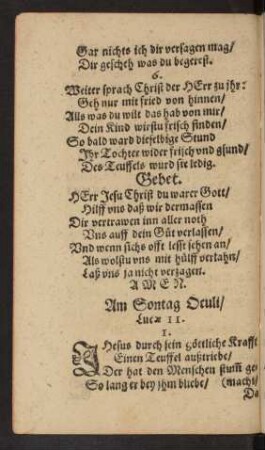 Gar nichts ich dir versagen mag/
Dir gescheh was du begerest.
6.
Weiter sprach Christ der HErr zu jhr:
Geh nur mit fried von hinnen/
Alls was du wilt das hab von mir/
Dein Kind wirstu frisch finden/
So bald ward dieselbige Stund
Jhr Tochter wider frisch vnd gsund/
Des Teuffels wurd sie ledig.
Gebet.
HErr Jesu Christ du warer Gott/
Hilff vns daß wir dermassen
Dir vertrawen inn aller noth
Vns auff dein Güt verlassen/
Vnd wenn sichs offt lesst sehen an/
Als wolstu vns mit hülff verlahn/
Laß vns ja nicht verzagen.
AMEN.
Am Sontag Oculi/
Lucæ 11.
1.
JHesus durch sein göttliche Krafft
Einen Teuffel außtriebe/
Der hat den Menschen stum̃ ge-
So lang er bey jhm bliebe/ (macht/
Da